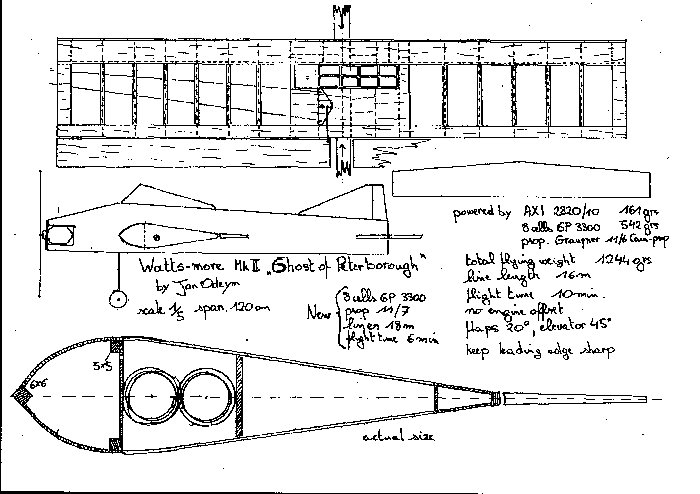 powered by AXI 2820/10 161 grs
8 cells GP 3300 542 grs
prop. Graupner 11/6 Cam-prop
total flying weight 1244 grs
line length 16m
flight time 10 min.
no engine offset
flaps 20°, elevator 45°
keep leading edge sharp
Watts-more Mk II „Ghost of Peterborough"
by Jan Odeyn
scale 1/5 span. 120 cm
New
8 cells GP 3300
prop 11/7
lines 18m
flight time 6 min
5x5
6x6
actual size